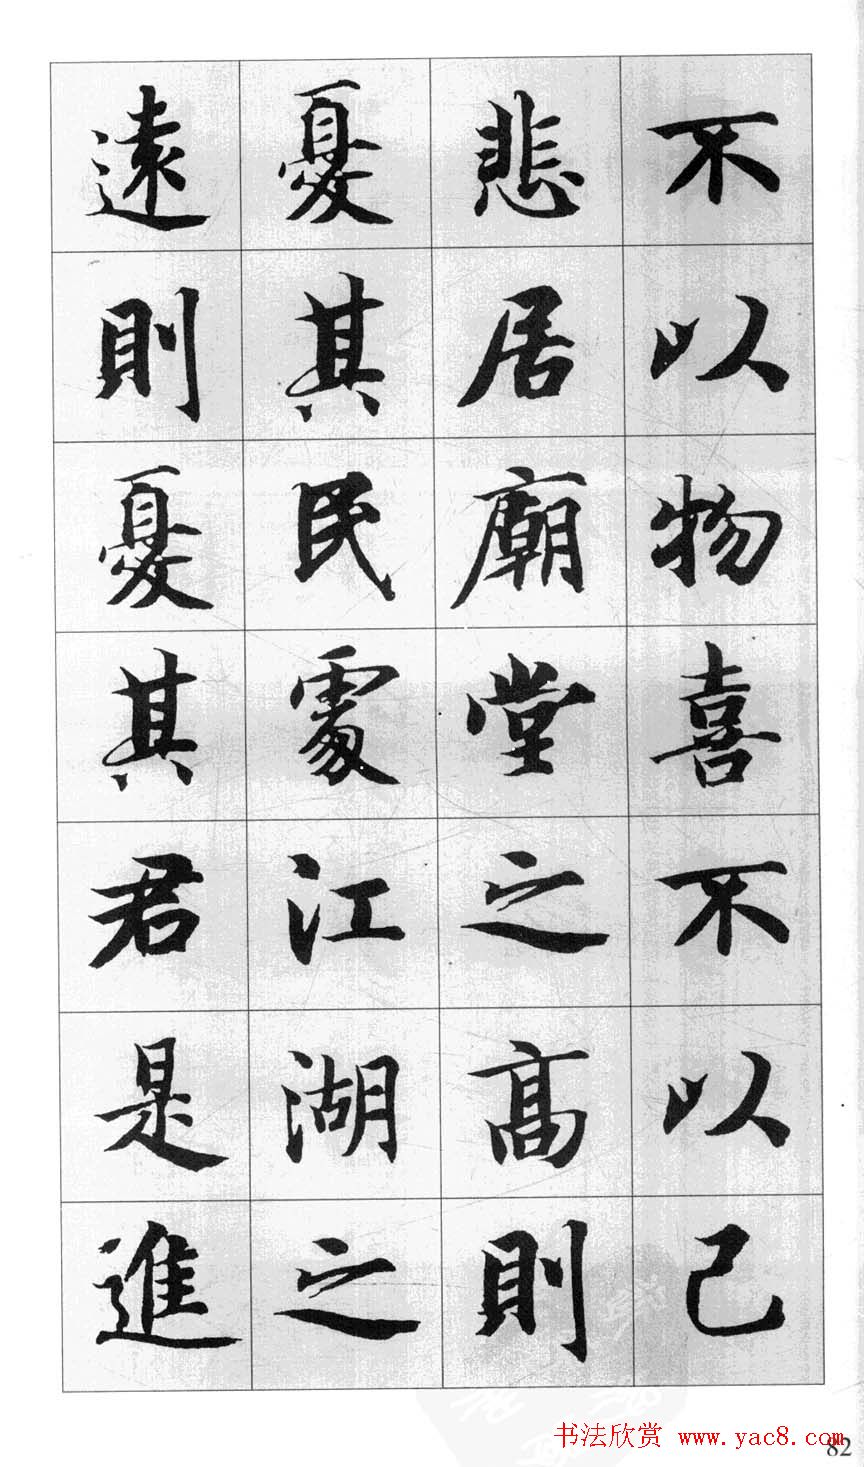 不以物喜不以己
悲居廟堂之高則
憂其民處江湖之
遠則憂其君是進
书法欣赏 www.yac8.com
82